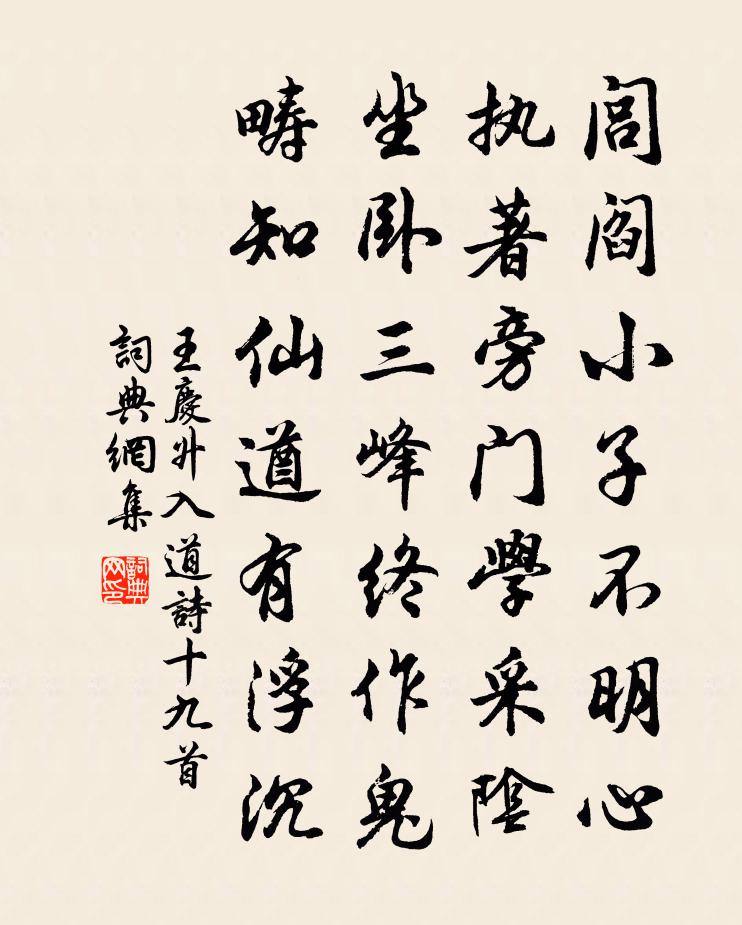 闾阎小子不明心
执著旁门學采陰
坐卧三峰终作鬼
畴知仙道有浮沉
王慶升入道詩十九首
詞典網集
詞典网印